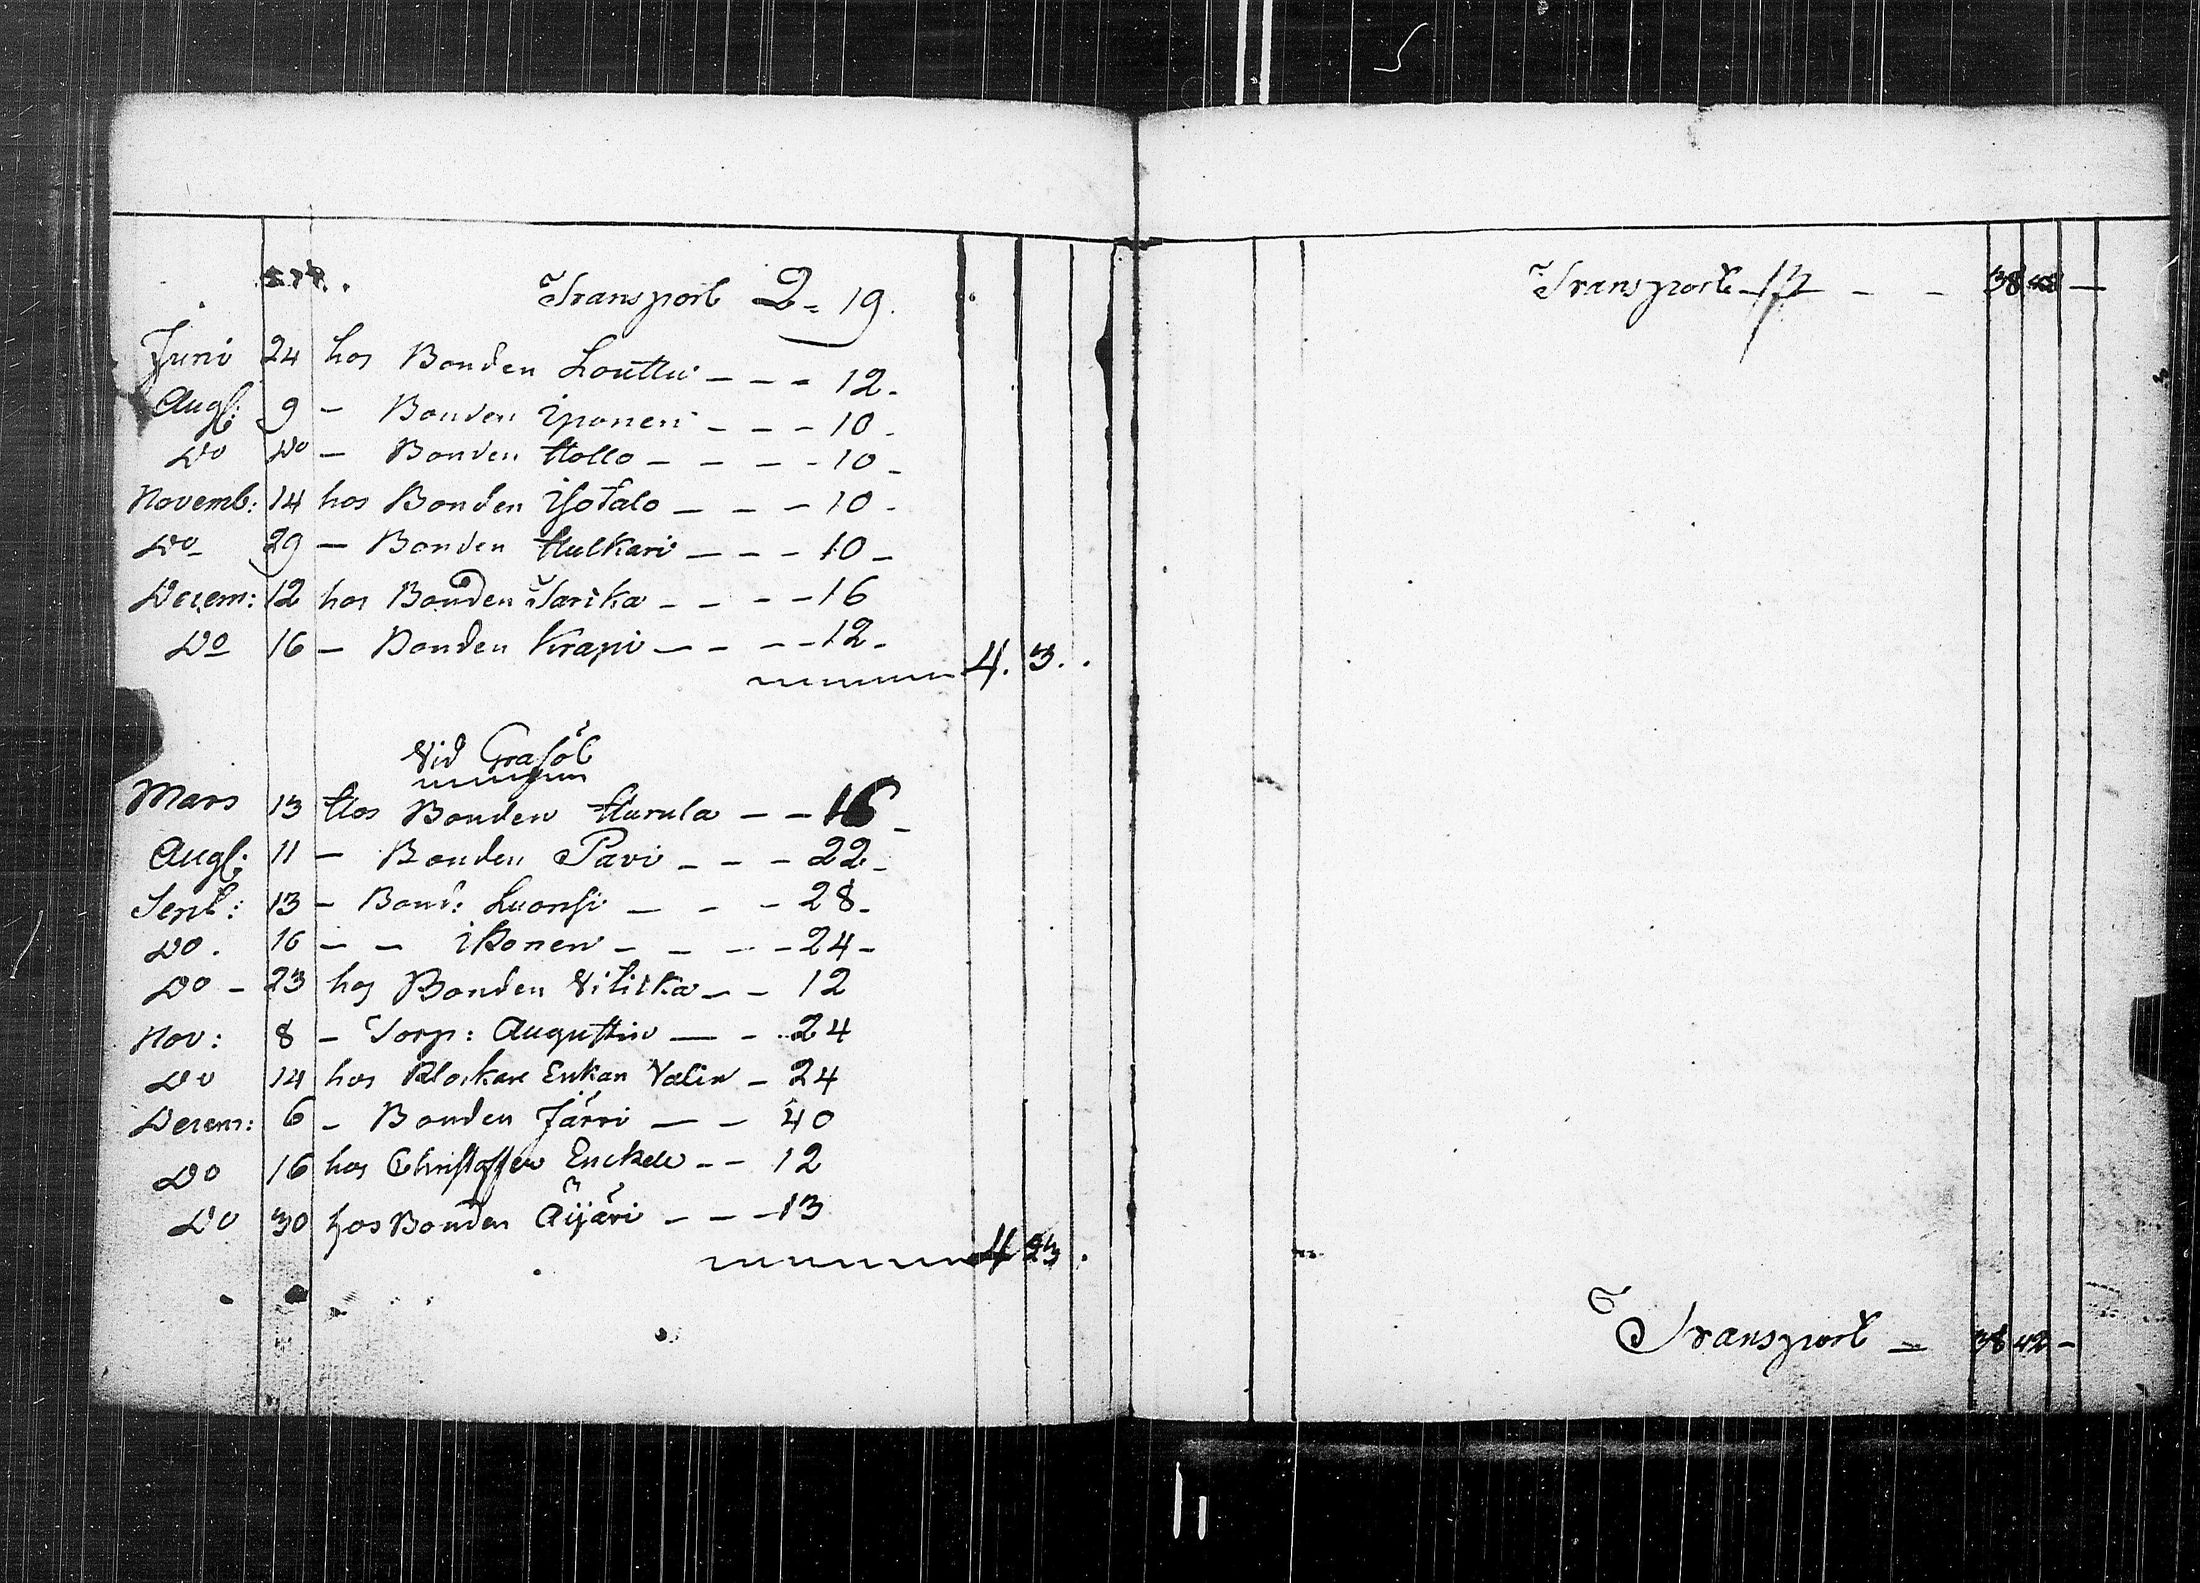 Transport 2 = 19.
Juni 24 hos Bonden Louttu - - - 12 -
Aug: 9 - Bonden Iponen - - - 10 -
Do Do - Bonden Hollo - - - - 10 -
Novemb: 14 hos Bonden Isotalo - - - 10 -
Do 29 - Bonden Hulkari - - - 10 -
Decem: 12 hos Bonden Tarika - - - - 16
Do 16 - Bonden Krapi - - - - 12 -
4. 3. .
Vid Gräsöl
Mars 13 Hos Bonden Harula - - 16 -
Aug: 11 - Bonden Pavi - - - 22 -
Sept: 13 - Bond: Luonsi - - - 28 -
Do. 16 - - Ikonen - - - - 24 -
Do - 23 hos Bonden Vilitka - - 12
Nov: 8 - Torp: Augustin - - 24
Do 14 hos Klockare Enkan Valin - 24
Decem: 6 - Bonden Järvi - - 40
Do 16 hos Christoffer Enckele - - 12
Do 30 hos Bonden Äijäri - - - 13
4 23 .
Transport - - - 38 42 -
Transport - 38 42 -